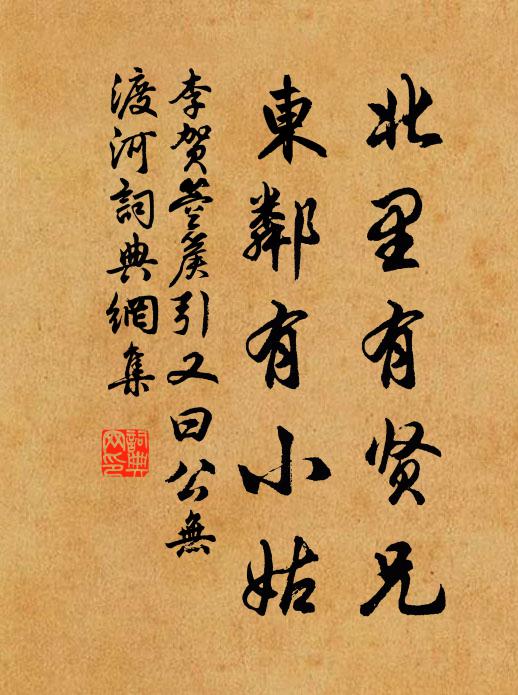 北里有贤兄
東鄰有小姑
李贺箜篌引又曰公無
渡河詞典網集
詞典網印